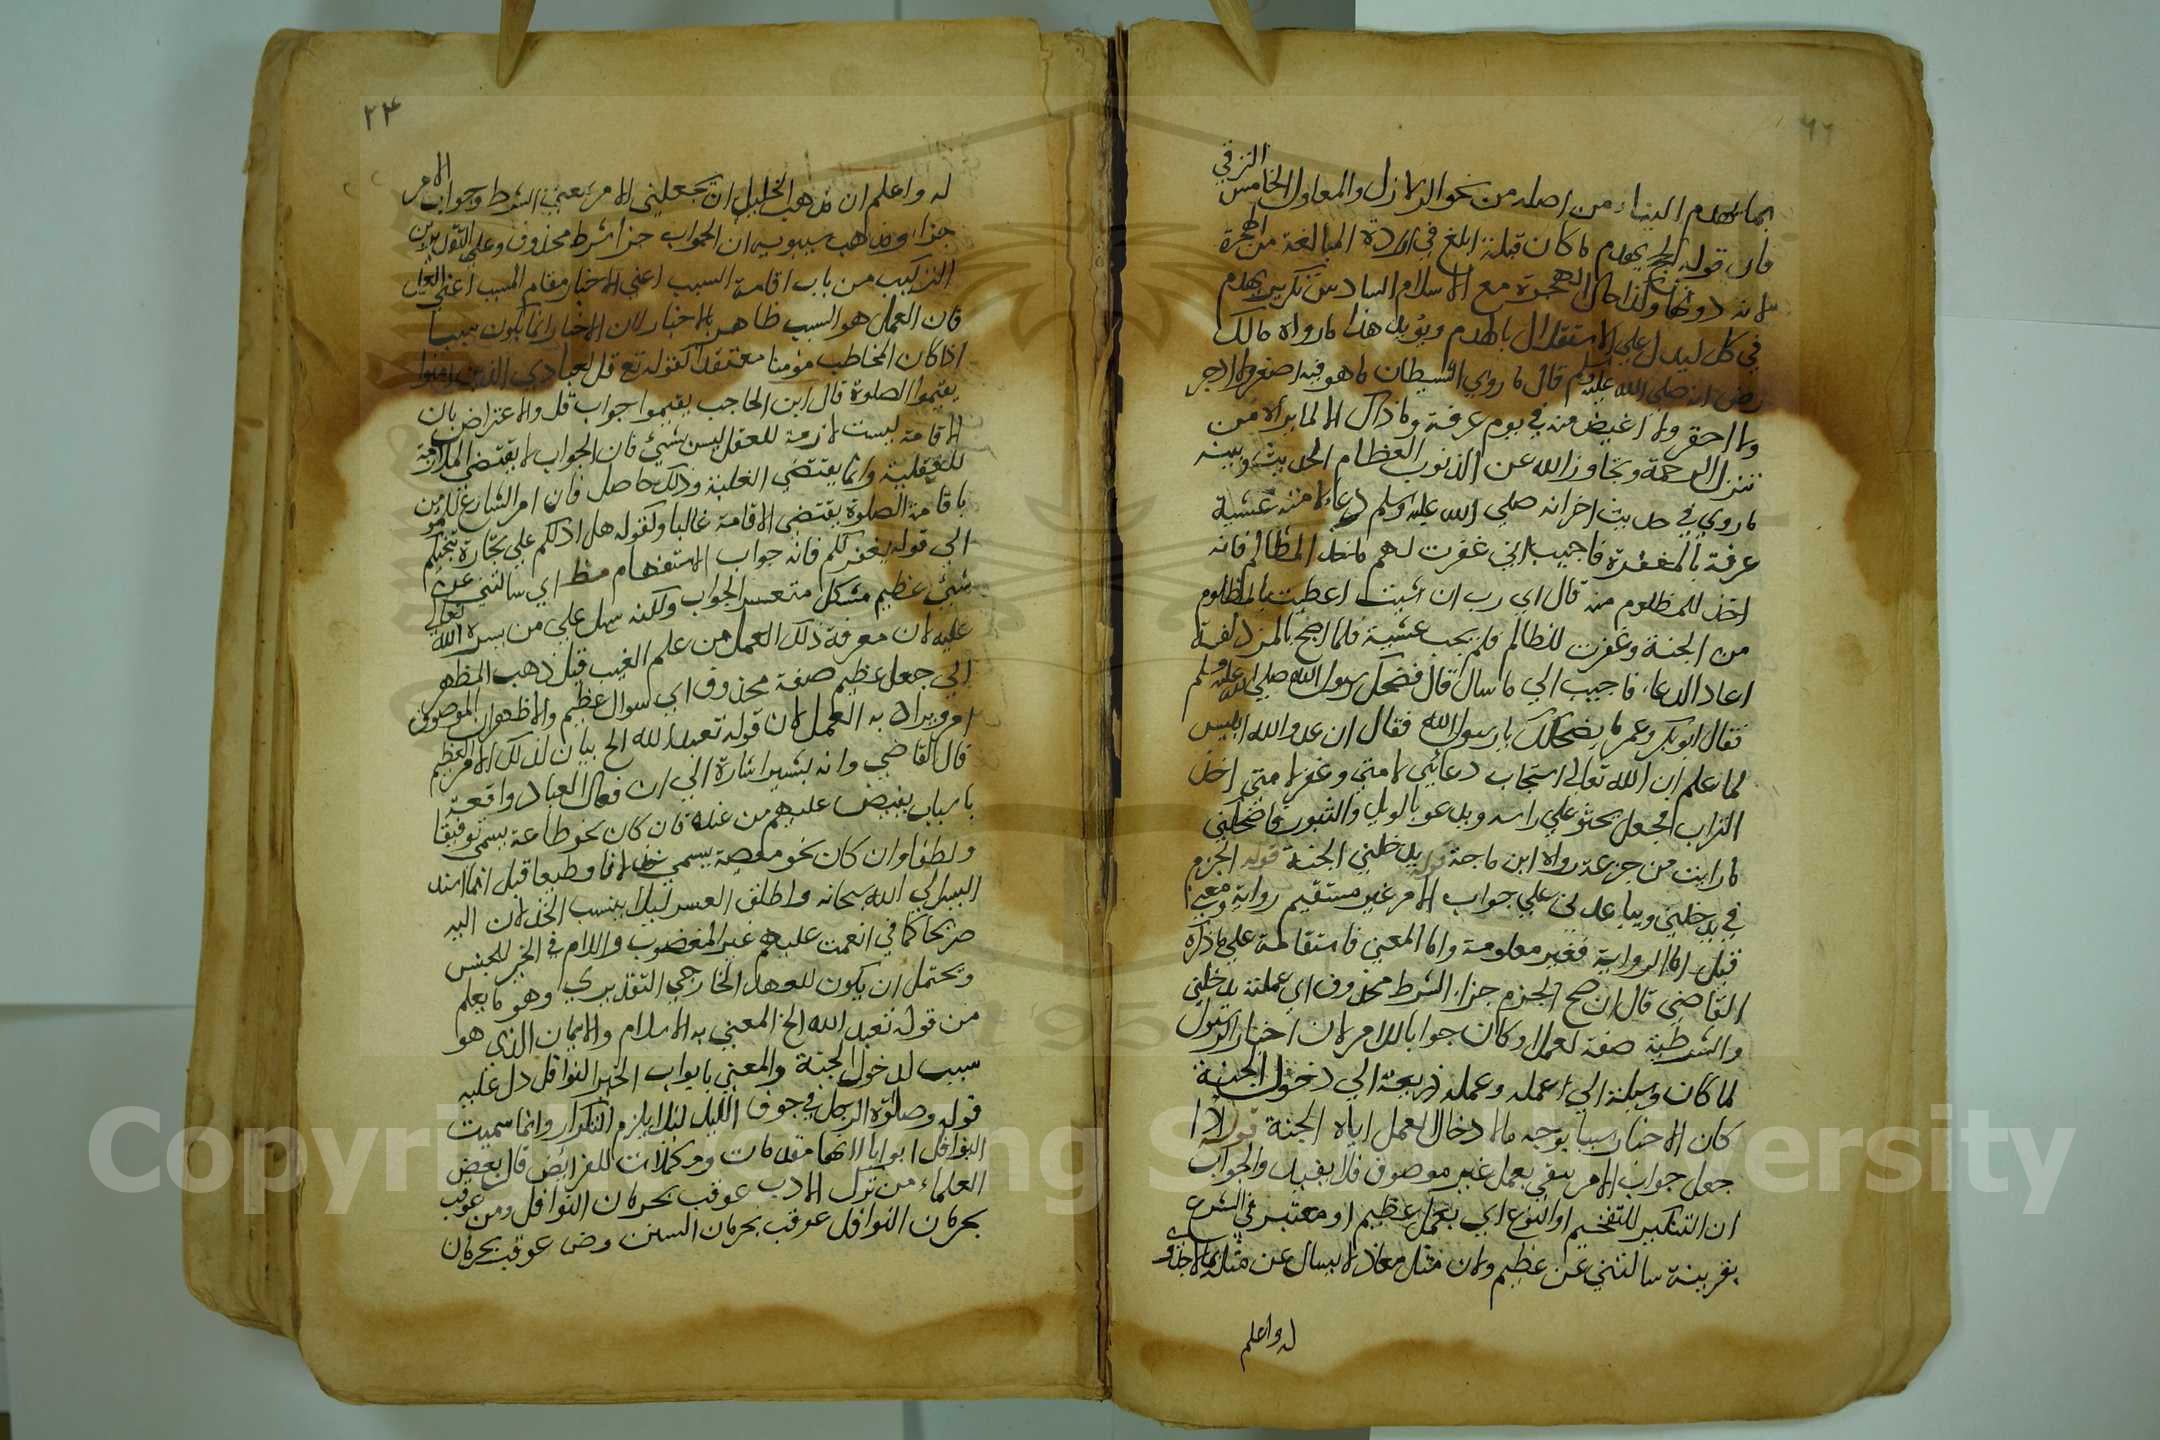 بما يهدم البناء من اصله من نحو الزلازل والمعاول الخامس الترقي
فان قوله الحج يهدم ما كان قبله ابلغ في ارادة المبالغة من الهجرة
لانه دونها وكذا حال الهجرة مع الاسلام السادس تكرير يهدم
في كل ليدل علي الاستقلال بالهدم ويؤيد هذا ما رواه مالك
رض انه صلى الله عليه وسلم قال ما روي الشيطان ما هو فيه اصغر ولا ادحر
ولا احقر ولا اغيض منه في يوم عرفة وما ذاك الا لما يراه من
تنزل الرحمة وتجاوز الله عن الذنوب العظام الحديث وبينه
ما روي في حديث اخر انه صلى الله عليه وسلم دعا لامته عشية
عرفة بالمغفرة فاجيب اني غفرت لهم ما خلا المظالم فانه
اخذ للمظلوم منه قال اي رب ان شئت اعطيت المظلوم
من الجنة وغفرت للظالم فلم يجب عشية فلما اصبح بالمزدلفة
اعاد الدعاء فاجيب الي ما سال قال فضحك رسول الله صلى الله عليه وسلم
فقال ابو بكر وعمر ما يضحكك يا رسول الله فقال ان عدو الله ابليس
لما علم ان الله تعالى استجاب دعائي لامتي وغفر لامتي اخذ
التراب فجعل يحثو علي راسه ويدعو بالويل والثبور فاضحكني
ما رايت من جزعه رواه ابن ماجة قوله يدخلني الجنة قوله الجزم
في يدخلني ويباعدني علي جواب الامر غير مستقيم رواية ومعنى
قيل اما الرواية فغير معلومة واما المعني فاستقامته علي ما ذكره
القاضي قال ان صح الجزم جزاء الشرط محذوف اي عملته يدخلني
والشرطية صفة لعمل او كان جوابا للامر لان اخبار الرسول
لما كان وسيلة الي اعمله وعمله ذريعة الي دخول الجنة
كان الاخبار سببا بوجه ما لادخال العمل اياه الجنة قوله اذا
جعل جواب الامر يبقي بعمل غير موصوف فلا يفيد والجواب
ان التنكير للتفخيم او النوع اي بعمل عظيم او معتبر في الشرع
بقرينة سالتني عن عظيم ولان مثل معاذ لا يسال عن مثله بما لا جدوى
له واعلم
٢٣
له واعلم ان مذهب الخليل ان تجعلني الامر بمعني الشرط وجواب الامر
جزاء ومذهب سيبويه ان الجواب جزا شرط محذوف وعلي التقديرين
التركيب من باب اقامة السبب اعني الاخبار مقام المسبب اعني العمل
فان العمل هو السبب ظاهرا لا الاخبار لان الاخبار انما يكون سببا
اذا كان المخاطب مؤمنا معتقدا كقوله تع قل لعبادي الذين امنوا
يقيموا الصلوة قال ابن الحاجب يقيموا جواب قل والاعتراض بان
الاقامة ليست لازمة للعقل ليس بشيئ فان الجواب لا يقتضي الملازمة
للعقلية وانما يقتضي الغلبة وذلك حاصل فان امر الشارع للمؤمن
باقامة الصلوة يقتضي الاقامة غالبا وكقوله هل ادلكم علي تجارة تنجيكم
الي قوله يغفر لكم فانه جواب الاستفهام مظ اي سالتني عن
شيئ عظيم مشكل متعسر الجواب ولكنه سهل علي من يسره الله تعالى
عليه لان معرفة ذلك العمل من علم الغيب قيل ذهب المظهر
الي جعل عظيم صفة محذوف اي سوال عظيم والاظهر ان الموصوف
امر ويراد به العمل لان قوله تعبد الله الخ بيان لذلك الامر العظيم
قال القاضي وانه يشير اشارة الي ان فعال العباد واقعة
باسباب يفيض عليهم من عنده فان كان نحو طاعة يسمي توفيقا
ولطفا وان كان نحو معصية يسمي خذلانا وطبعا قيل انما اسند
اليسر الي الله سبحانه واطلق العسر ليلا ينسب الخذلان اليه
صريحا كما في انعمت عليهم غير المغضوب واللام في الخير للجنس
ويحتمل ان يكون للعهد الخارجي التقديري وهو ما يعلم
من قوله تعبد الله الخ المعني به الاسلام والايمان الذي هو
سبب لدخول الجنة والمعني بابواب الخير النوافل دل عليه
قوله وصلوة الرجل في جوف الليل ليلا يلزم التكرار وانما سميت
النوافل ابوابا لانها مقدمات ومكملات للفرائض قال بعض
العلماء من ترك الادب عوقب بحرمان النوافل ومن عوقب
بحرمان النوافل عوقب بحرمان السنن ومن عوقب بحرمان
Copyright © King Saud University